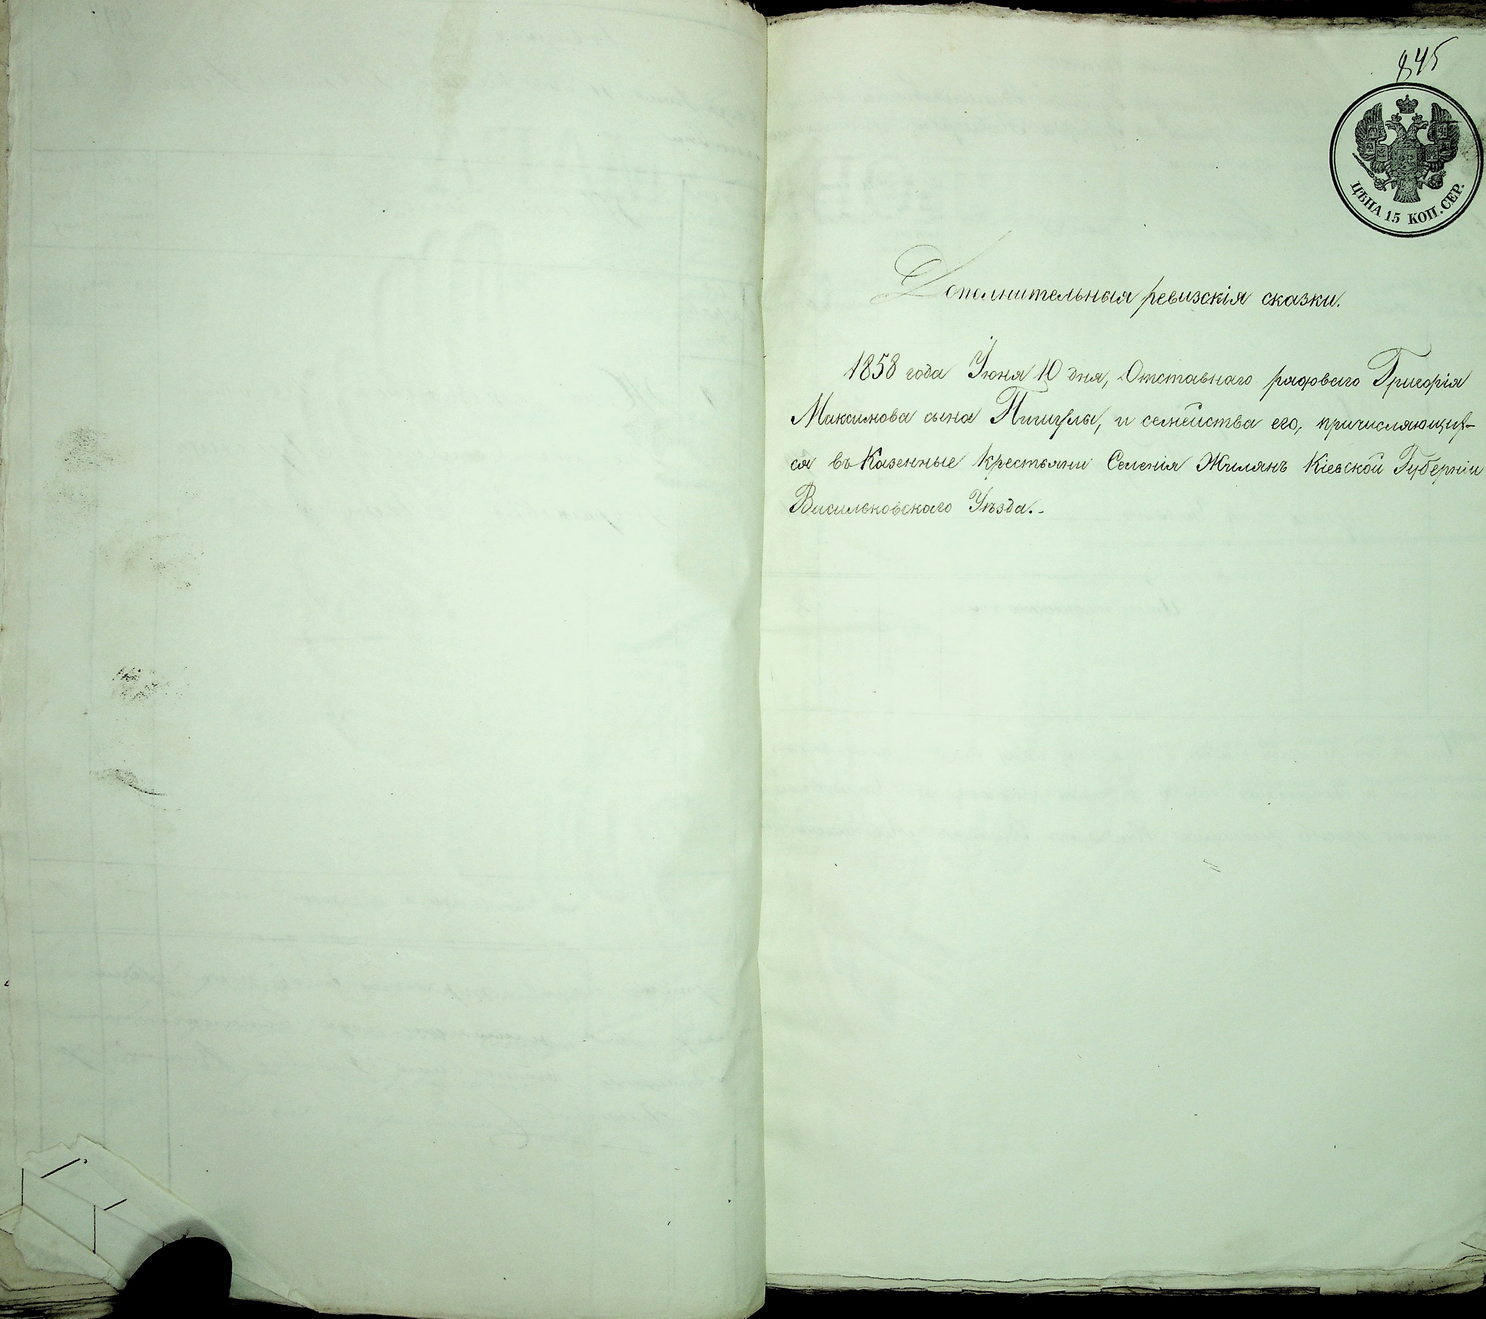 845
ЦѢНА 15 КОП. СЕР.
Дополнительныя ревизскія сказки.
1858 года Іюня 10 дня, Отставнаго рядоваго Григорія
Максимова сына Пигулы, и семейства его, причисляющих-
ся въ Казенные крестьяни Селенія Жилянъ Кіевской Губерніи
Васильковскаго Уѣзда.